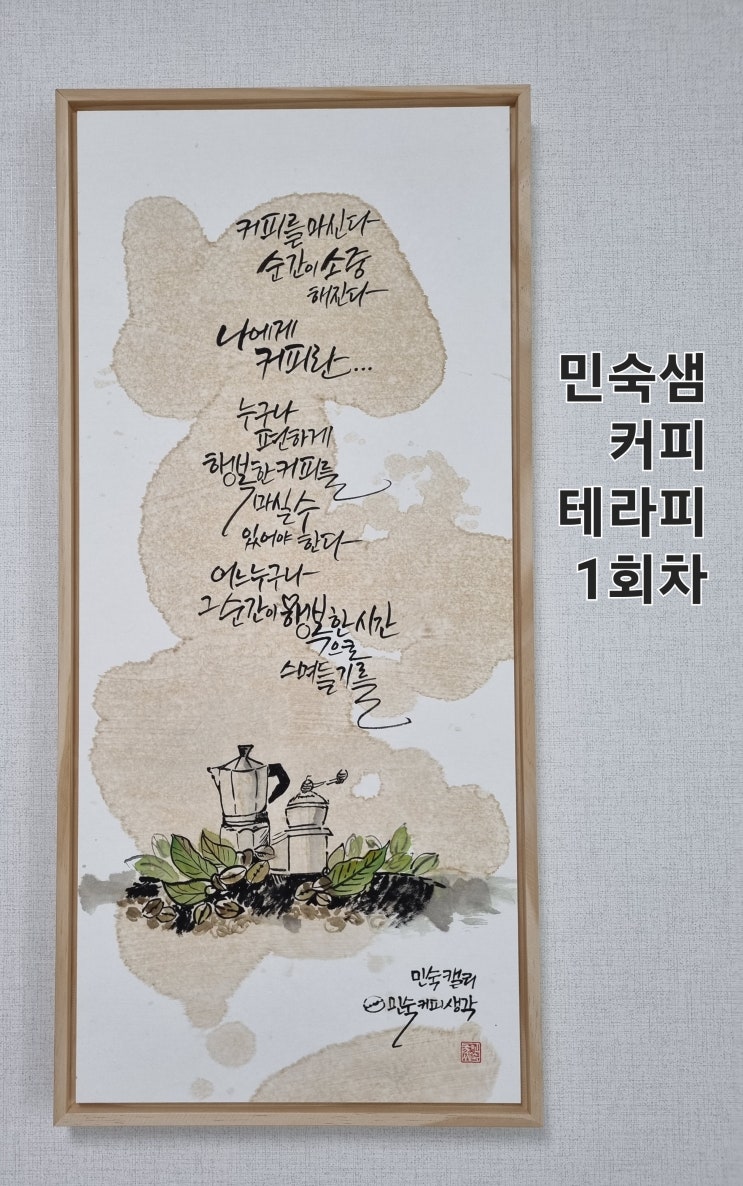 커피를 마신다
순간이 소중
해진다
나에게
커피란...
누구나
편하게
행복한 커피를
마실 수
있어야 한다
어느누구나
그 순간이 행복한 시간
으로
스며들기를
민숙캘리
민숙커피생각
민숙샘
커피
테라피
1회차